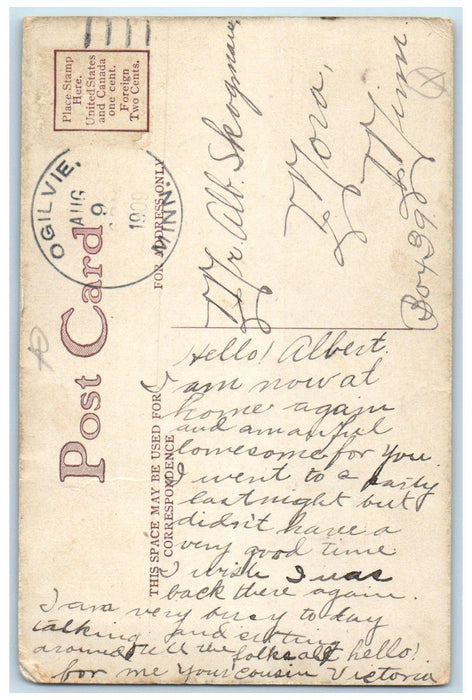 Place Stamp
Here.
United States
and Canada
one cent.
Foreign
Two Cents.
OGILVIE,
AUG
9
1909
MINN.
Post Card
FOR ADDRESS ONLY
THIS SPACE MAY BE USED FOR
CORRESPONDENCE
Mr Alb. Skogman,
Mora,
Minn.
Box 39
Hello! Albert.
I am now at
home again
and am awful
lonesome for you.
I went to a party
last night but
didsn't have a
very good time
I wish I was
back there again.
I am very busy to day
talking and sitting
around Tell the folks all hello!
for me Your cousin Victoria